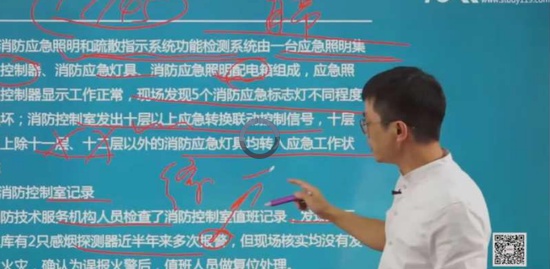 www.sfbuy119.com
消防应急照明和疏散指示系统功能检测系统由一台应急照明集
控制器、消防应急灯具、消防应急照明配电箱组成，应急照
控制器显示工作正常，现场发现5个消防应急标志灯不同程度
坏；消防控制室发出十层以上应急转换联动控制信号，十层
上除十一层、十二层以外的消防应急灯具均转入应急工作状
消防控制室记录
防技术服务机构人员检查了消防控制室值班记录，发
库有2只感烟探测器近半年来多次报警，但现场核实均没有发
火灾，确认为误报火警后，值班人员做复位处理。